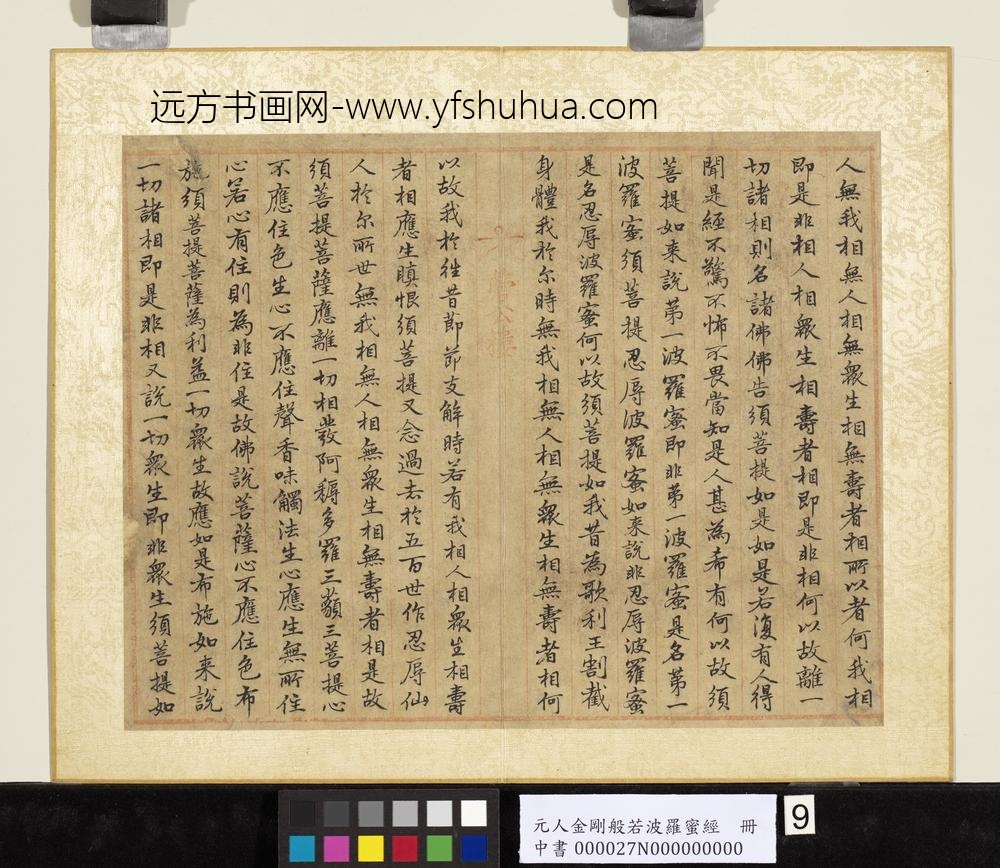 远方书画网-www.yfshuhua.com
人無我相無人相無衆生相無壽者相所以者何我相
即是非相人相衆生相壽者相即是非相何以故離一
切諸相則名諸佛佛告須菩提如是如是若復有人得
聞是經不驚不怖不畏當知是人甚為希有何以故須
菩提如来說苐一波羅蜜即非苐一波羅蜜是名苐一
波羅蜜須菩提忍辱波羅蜜如来說非忍辱波羅蜜
是名忍辱波羅蜜何以故須菩提如我昔為歌利王割截
身體我於尔時無我相無人相無衆生相無壽者相何
以故我於徃昔節節支解時若有我相人相衆生相壽
者相應生瞋恨須菩提又念過去於五百世作忍辱仙
人於尔所世無我相無人相無衆生相無壽者相是故
須菩提菩薩應離一切相發阿耨多羅三藐三菩提心
不應住色生心不應住聲香味觸法生心應生無所住
心若心有住則為非住是故佛說菩薩心不應住色布
施須菩提菩薩為利益一切衆生故應如是布施如来說
一切諸相即是非相又說一切衆生即非衆生須菩提如
元人金剛般若波羅蜜經 冊
中書 000027N000000000
9